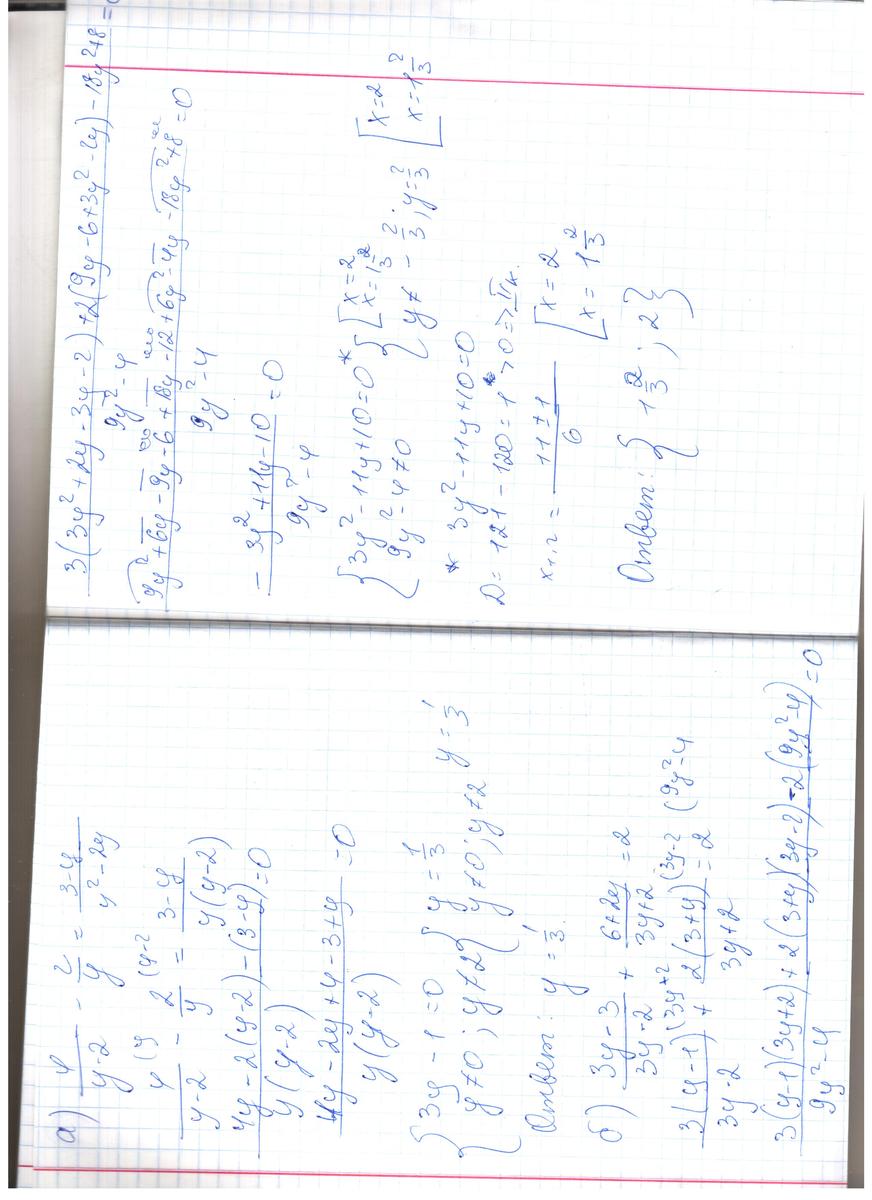 а) 4/(y-2) - 2/y = (3-y)/(y²-2y)
4(y/(y-2) - 2(y-2/y = (3-y)/(y(y-2))
(4y-2(y-2)-(3-y))/(y(y-2)) =0
(4y-2y+4-3+y)/(y(y-2)) =0
{3y-1=0 {y=1/3
y≠0; y≠2 y≠0; y≠2 y=1/3
Ответ: y=1/3.
б) (3y-3)/(3y-2) + (6+2y)/(3y+2) =2
3(y-1)(3y+2/(3y-2) + 2(3+y)(3y-2/(3y+2) = 2(9y²-4
(3(y-1)(3y+2)+2(3+y)(3y-2)-2(9y²-4))/(9y²-4) =0
(3(3y²+2y-3y-2)+2(9y-6+3y²-2y)-18y²+8)/(9y²-4) =0
(9y²+6y-9y-6+18y-12+6y²-4y-18y²+8)/(9y²-4) =0
(-3y²+11y-10)/(9y²-4) =0
{3y²-11y+10=0* {[x=2 x=1 2/3 [x=2
9y²-4≠0 y≠-2/3; y=2/3 x=1 2/3
* 3y²-11y+10=0
D=121-120=1 >0=>IIк.
x1,2 = (11±1)/6 [x=2
x=1 2/3
Ответ: {1 2/3; 2}